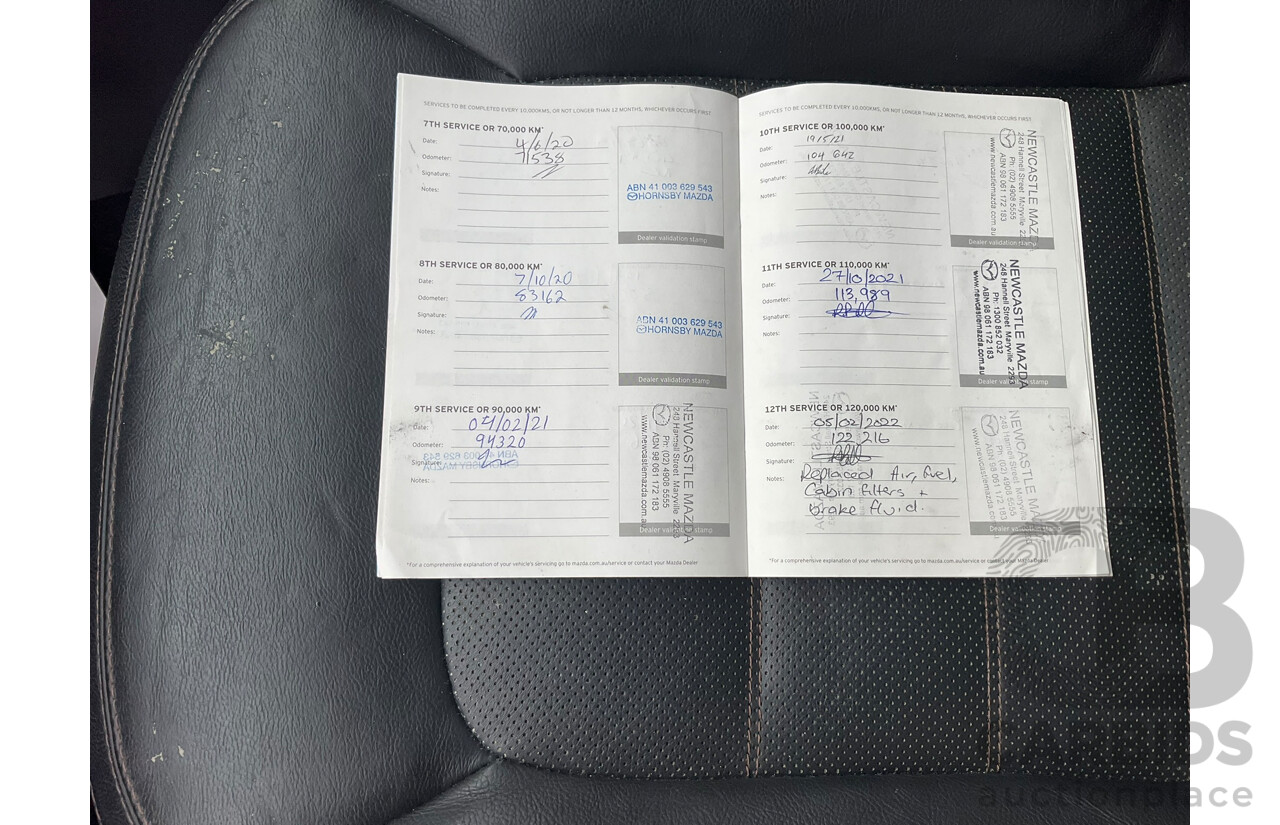 SERVICES TO BE COMPLETED EVERY 10,000KMS, OR NOT LONGER THAN 12 MONTHS, WHICHEVER OCCURS FIRST
7TH SERVICE OR 70,000 KM*
Date: 4/6/20
Odometer: 71538
Signature:
Notes:
ABN 41 003 629 543
HORNSBY MAZDA
Dealer validation stamp
8TH SERVICE OR 80,000 KM*
Date: 7/10/20
Odometer: 83162
Signature:
Notes:
ABN 41 003 629 543
HORNSBY MAZDA
Dealer validation stamp
9TH SERVICE OR 90,000 KM*
Date: 04/02/21
Odometer: 94320
Signature:
Notes:
NEWCASTLE MAZDA
248 Hannell Street Maryville 2293
Ph: (02) 4908 5555
ABN 98 061 172 183
www.newcastlemazda.com.a
Dealer validation stamp
*For a comprehensive explanation of your vehicle's servicing go to mazda.com.au/service or contact your Mazda Dealer
SERVICES TO BE COMPLETED EVERY 10,000KMS, OR NOT LONGER THAN 12 MONTHS, WHICHEVER OCCURS FIRST
10TH SERVICE OR 100,000 KM*
Date: 19/5/21
Odometer: 104 642
Signature:
Notes:
NEWCASTLE MAZDA
248 Hannell Street Maryville 22
Ph: (02) 4908 5555
ABN 98 061 172 183
www.newcastlemazda.com.au
Dealer validation stamp
11TH SERVICE OR 110,000 KM*
Date: 27/10/2021
Odometer: 113,989
Signature:
Notes:
NEWCASTLE MAZDA
248 Hannell Street Maryville 2293
Ph: 1300 852 032
ABN 98 061 172 183
www.newcastlemazda.com.au
Dealer validation stamp
12TH SERVICE OR 120,000 KM*
Date: 05/02/2022
Odometer: 122 216
Signature:
Notes: Replaced Air, fuel,
Cabin filters +
brake fluid.
NEWCASTLE MAZDA
248 Hannell Street Maryville
Ph: (02) 4908 5555
ABN 98 061 172 183
www.newcastlemazda.com
Dealer validation stamp
*For a comprehensive explanation of your vehicle's servicing go to mazda.com.au/service or contact your Mazda Dealer
auctionplace